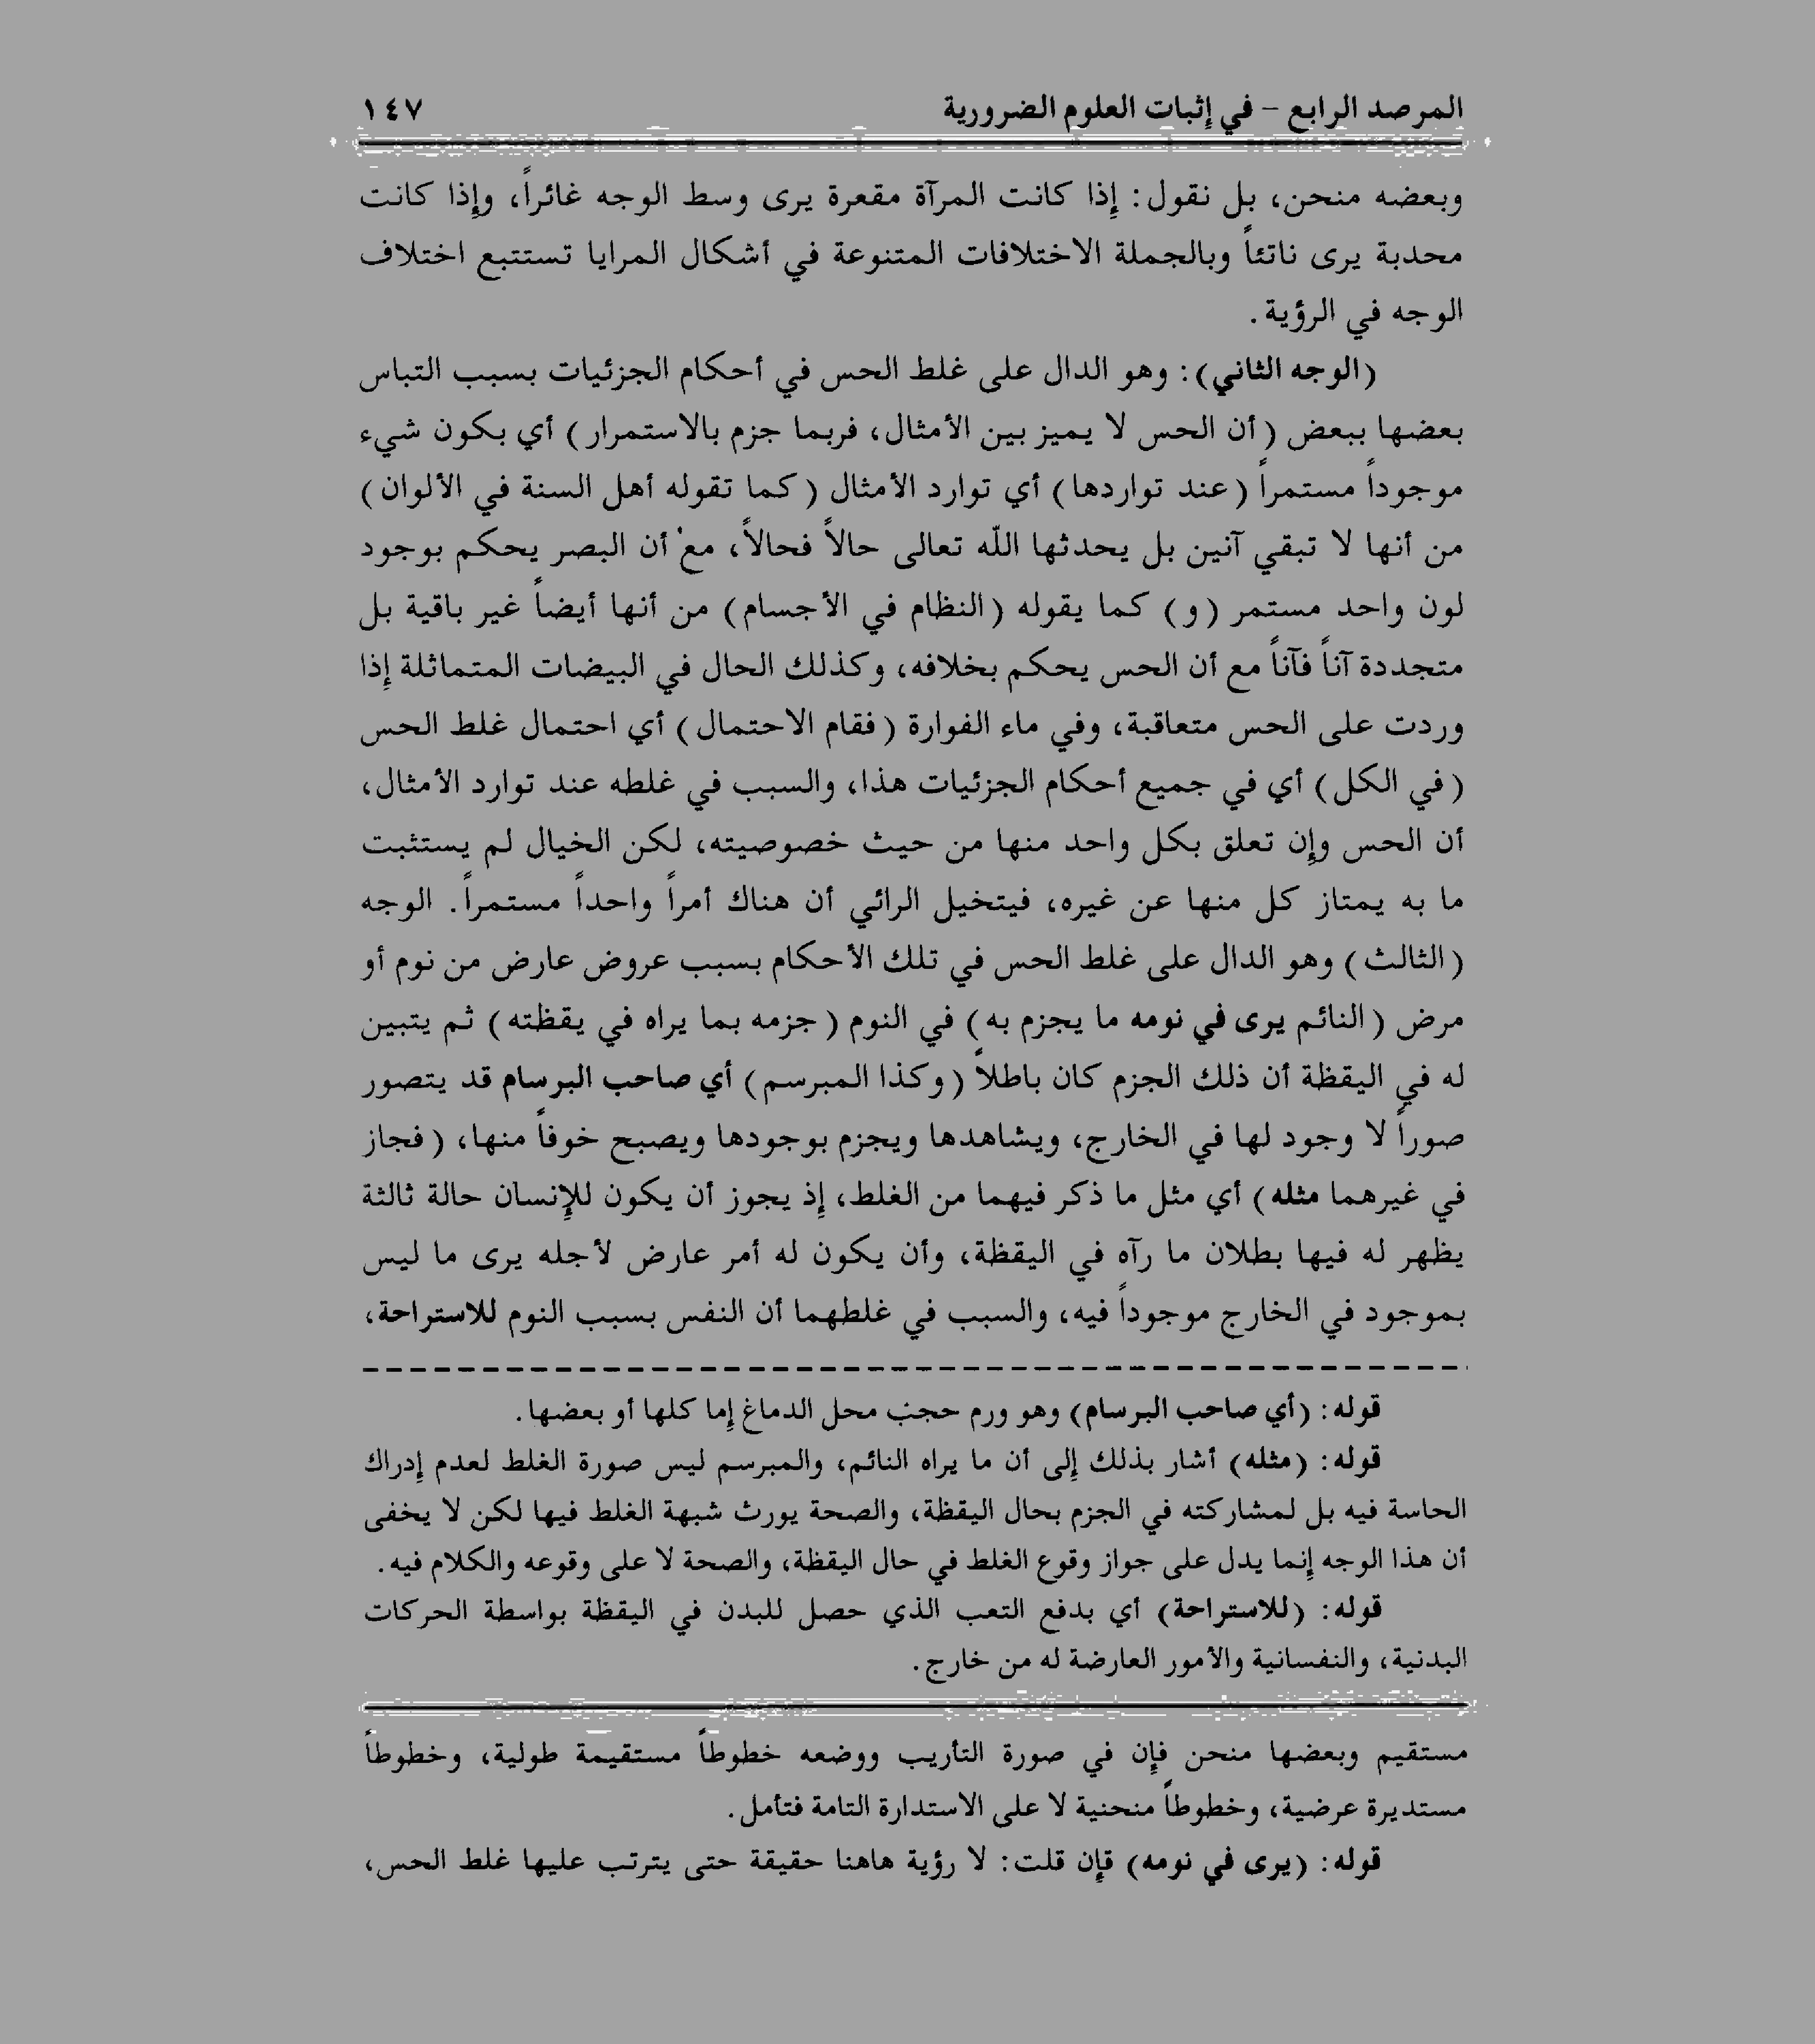 المرصد الرابع – في إثبات العلوم الضرورية ١٤٧
وبعضه منحن، بل نقول: إذا كانت المرآة مقعرة يرى وسط الوجه غائراً، وإذا كانت
محدبة يرى ناتئاً وبالجملة الاختلافات المتنوعة في أشكال المرايا تستتبع اختلاف
الوجه في الرؤية.
(الوجه الثاني): وهو الدال على غلط الحس في أحكام الجزئيات بسبب التباس
بعضها ببعض (أن الحس لا يميز بين الأمثال، فربما جزم بالاستمرار) أي بكون شيء
موجوداً مستمراً (عند تواردها) أي توارد الأمثال (كما تقوله أهل السنة في الألوان)
من أنها لا تبقي آنين بل يحدثها اللّه تعالى حالاً فحالاً، مع أن البصر يحكم بوجود
لون واحد مستمر (و) كما يقوله (النظام في الأجسام) من أنها أيضاً غير باقية بل
متجددة آناً فآناً مع أن الحس يحكم بخلافه، وكذلك الحال في البيضات المتماثلة إذا
وردت على الحس متعاقبة، وفي ماء الفوارة (فقام الاحتمال) أي احتمال غلط الحس
(في الكل) أي في جميع أحكام الجزئيات هذا، والسبب في غلطه عند توارد الأمثال،
أن الحس وإن تعلق بكل واحد منها من حيث خصوصيته، لكن الخيال لم يستثبت
ما به يمتاز كل منها عن غيره، فيتخيل الرائي أن هناك أمراً واحداً مستمراً. الوجه
(الثالث) وهو الدال على غلط الحس في تلك الأحكام بسبب عروض عارض من نوم أو
مرض (النائم يرى في نومه ما يجزم به) في النوم (جزمه بما يراه في يقظته) ثم يتبين
له في اليقظة أن ذلك الجزم كان باطلاً (وكذا المبرسم) أي صاحب البرسام قد يتصور
صوراً لا وجود لها في الخارج، ويشاهدها ويجزم بوجودها ويصبح خوفاً منها، (فجاز
في غيرهما مثله) أي مثل ما ذكر فيهما من الغلط، إذ يجوز أن يكون للإنسان حالة ثالثة
يظهر له فيها بطلان ما رآه في اليقظة، وأن يكون له أمر عارض لأجله يرى ما ليس
بموجود في الخارج موجوداً فيه، والسبب في غلطهما أن النفس بسبب النوم للاستراحة،
قوله: (أي صاحب البرسام) وهو ورم حجب محل الدماغ إما كلها أو بعضها.
قوله: (مثله) أشار بذلك إلى أن ما يراه النائم، والمبرسم ليس صورة الغلط لعدم إدراك
الحاسة فيه بل لمشاركته في الجزم بحال اليقظة، والصحة يورث شبهة الغلط فيها لكن لا يخفى
أن هذا الوجه إنما يدل على جواز وقوع الغلط في حال اليقظة، والصحة لا على وقوعه والكلام فيه.
قوله: (للاستراحة) أي بدفع التعب الذي حصل للبدن في اليقظة بواسطة الحركات
البدنية، والنفسانية والأمور العارضة له من خارج.
مستقيم وبعضها منحن فإن في صورة التأريب ووضعه خطوطاً مستقيمة طولية، وخطوطاً
مستديرة عرضية، وخطوطاً منحنية لا على الاستدارة التامة فتأمل.
قوله: (يرى في نومه) فإن قلت: لا رؤية هاهنا حقيقة حتى يترتب عليها غلط الحس،